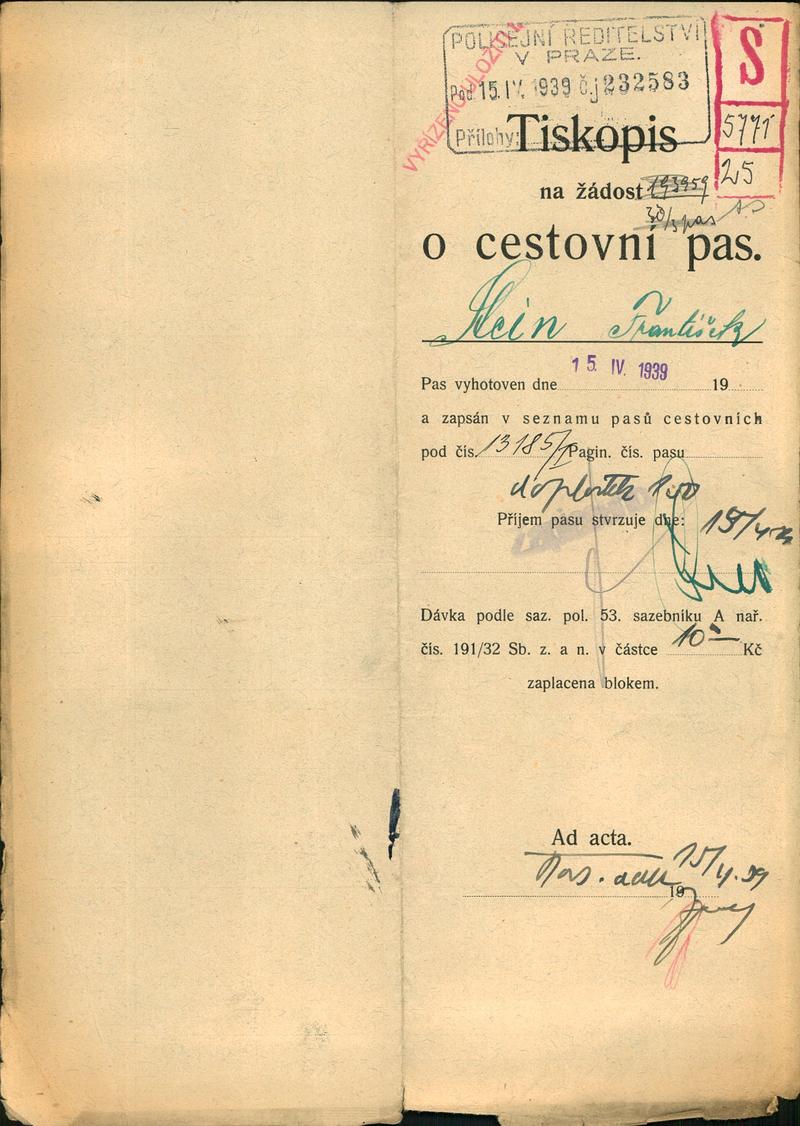 POLICEJNÍ ŘEDITELSTVÍ
V PRAZE.
Pod 15. IV. 1939 č.j 232583
Přílohy:
VYŘÍZENO ULOŽIT
S
5771
25
Tiskopis
na žádost 193959
30/3 pas
o cestovní pas.
Stein František
Pas vyhotoven dne 15. IV. 1939 19
a zapsán v seznamu pasů cestovních
pod čís. 13185/I Pagin. čís. pasu
doplatek
Příjem pasu stvrzuje dne: 15/4
Dávka podle saz. pol. 53. sazebníku A nař.
čís. 191/32 Sb. z. a n. v částce 10- Kč
zaplacena blokem.
Ad acta.
15/4.39
19